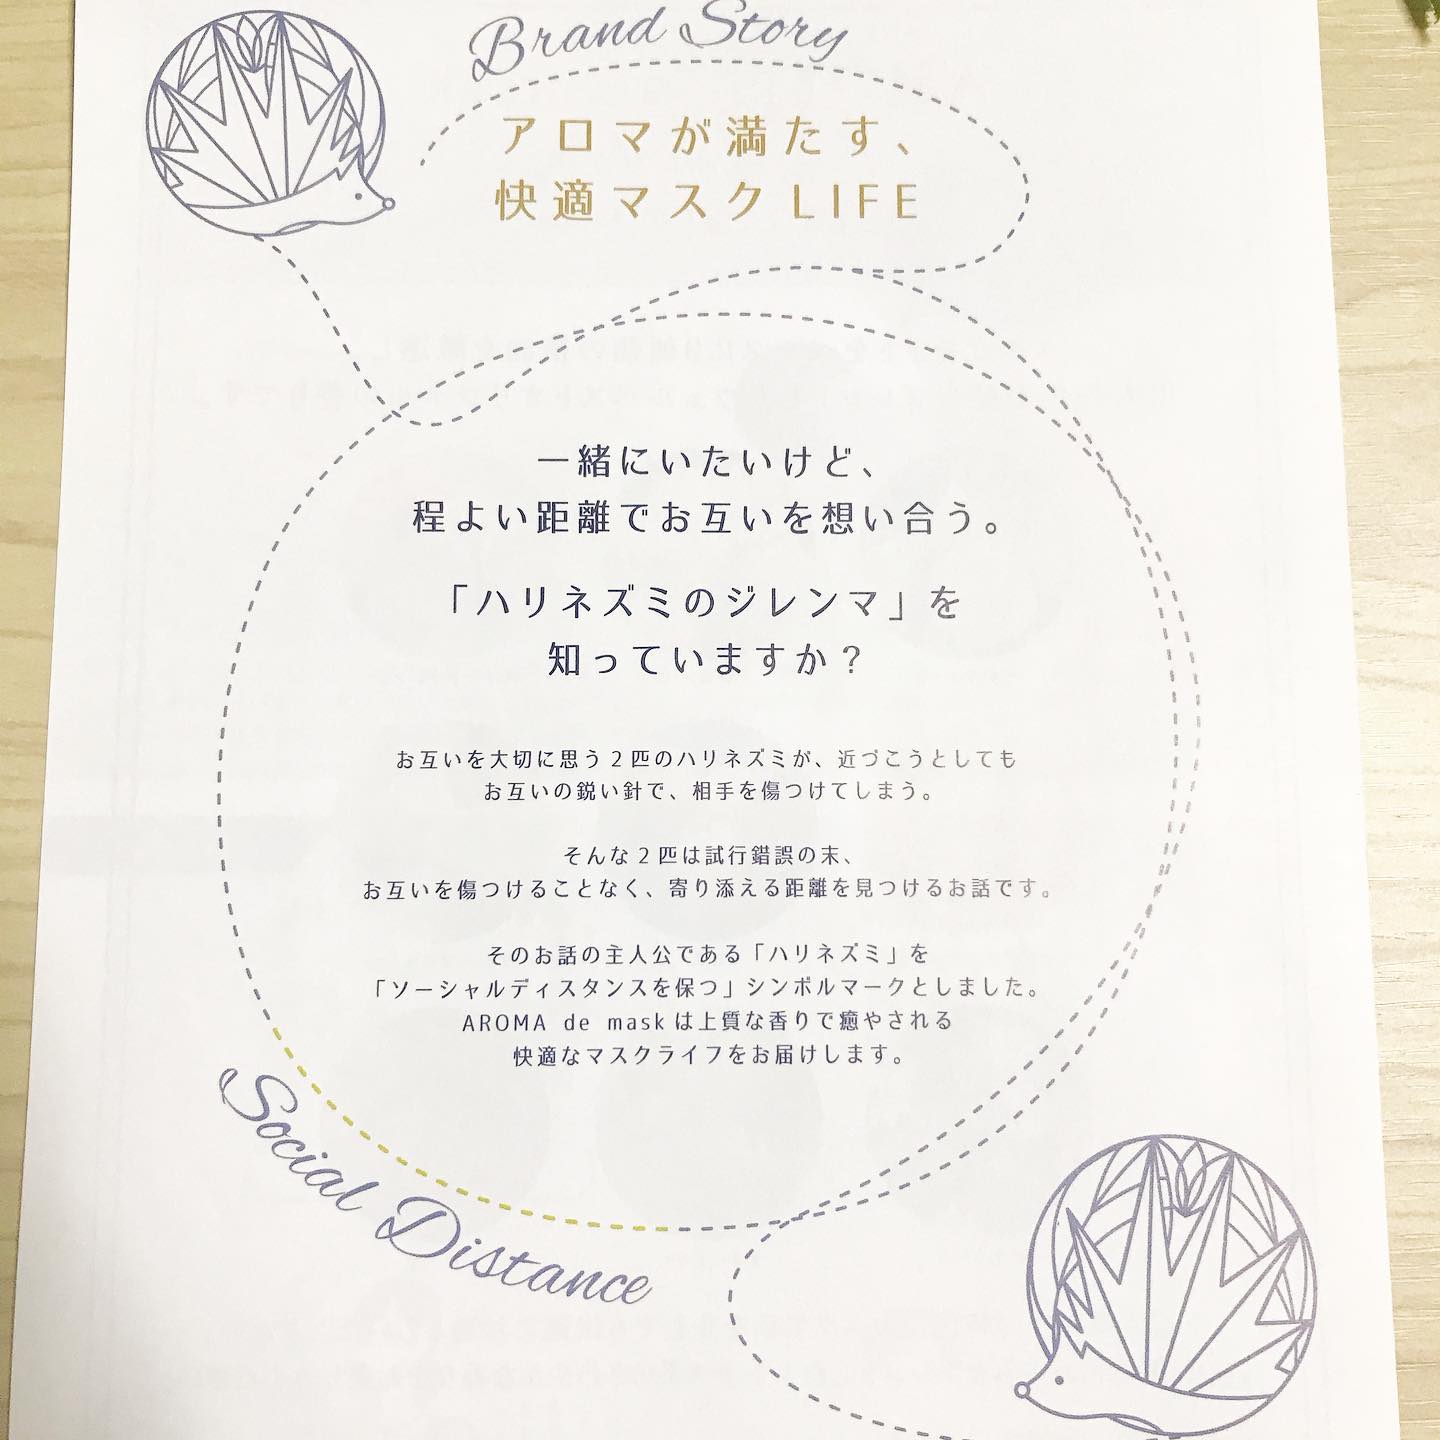 Brand Story
アロマが満たす、
快適マスクLIFE
一緒にいたいけど、
程よい距離でお互いを想い合う。
「ハリネズミのジレンマ」を
知っていますか？
お互いを大切に思う2匹のハリネズミが、近づこうとしても
お互いの鋭い針で、相手を傷つけてしまう。
そんな2匹は試行錯誤の末、
お互いを傷つけることなく、寄り添える距離を見つけるお話です。
そのお話の主人公である「ハリネズミ」を
「ソーシャルディスタンスを保つ」シンボルマークとしました。
AROMA de maskは上質な香りで癒やされる
快適なマスクライフをお届けします。
Social Distance